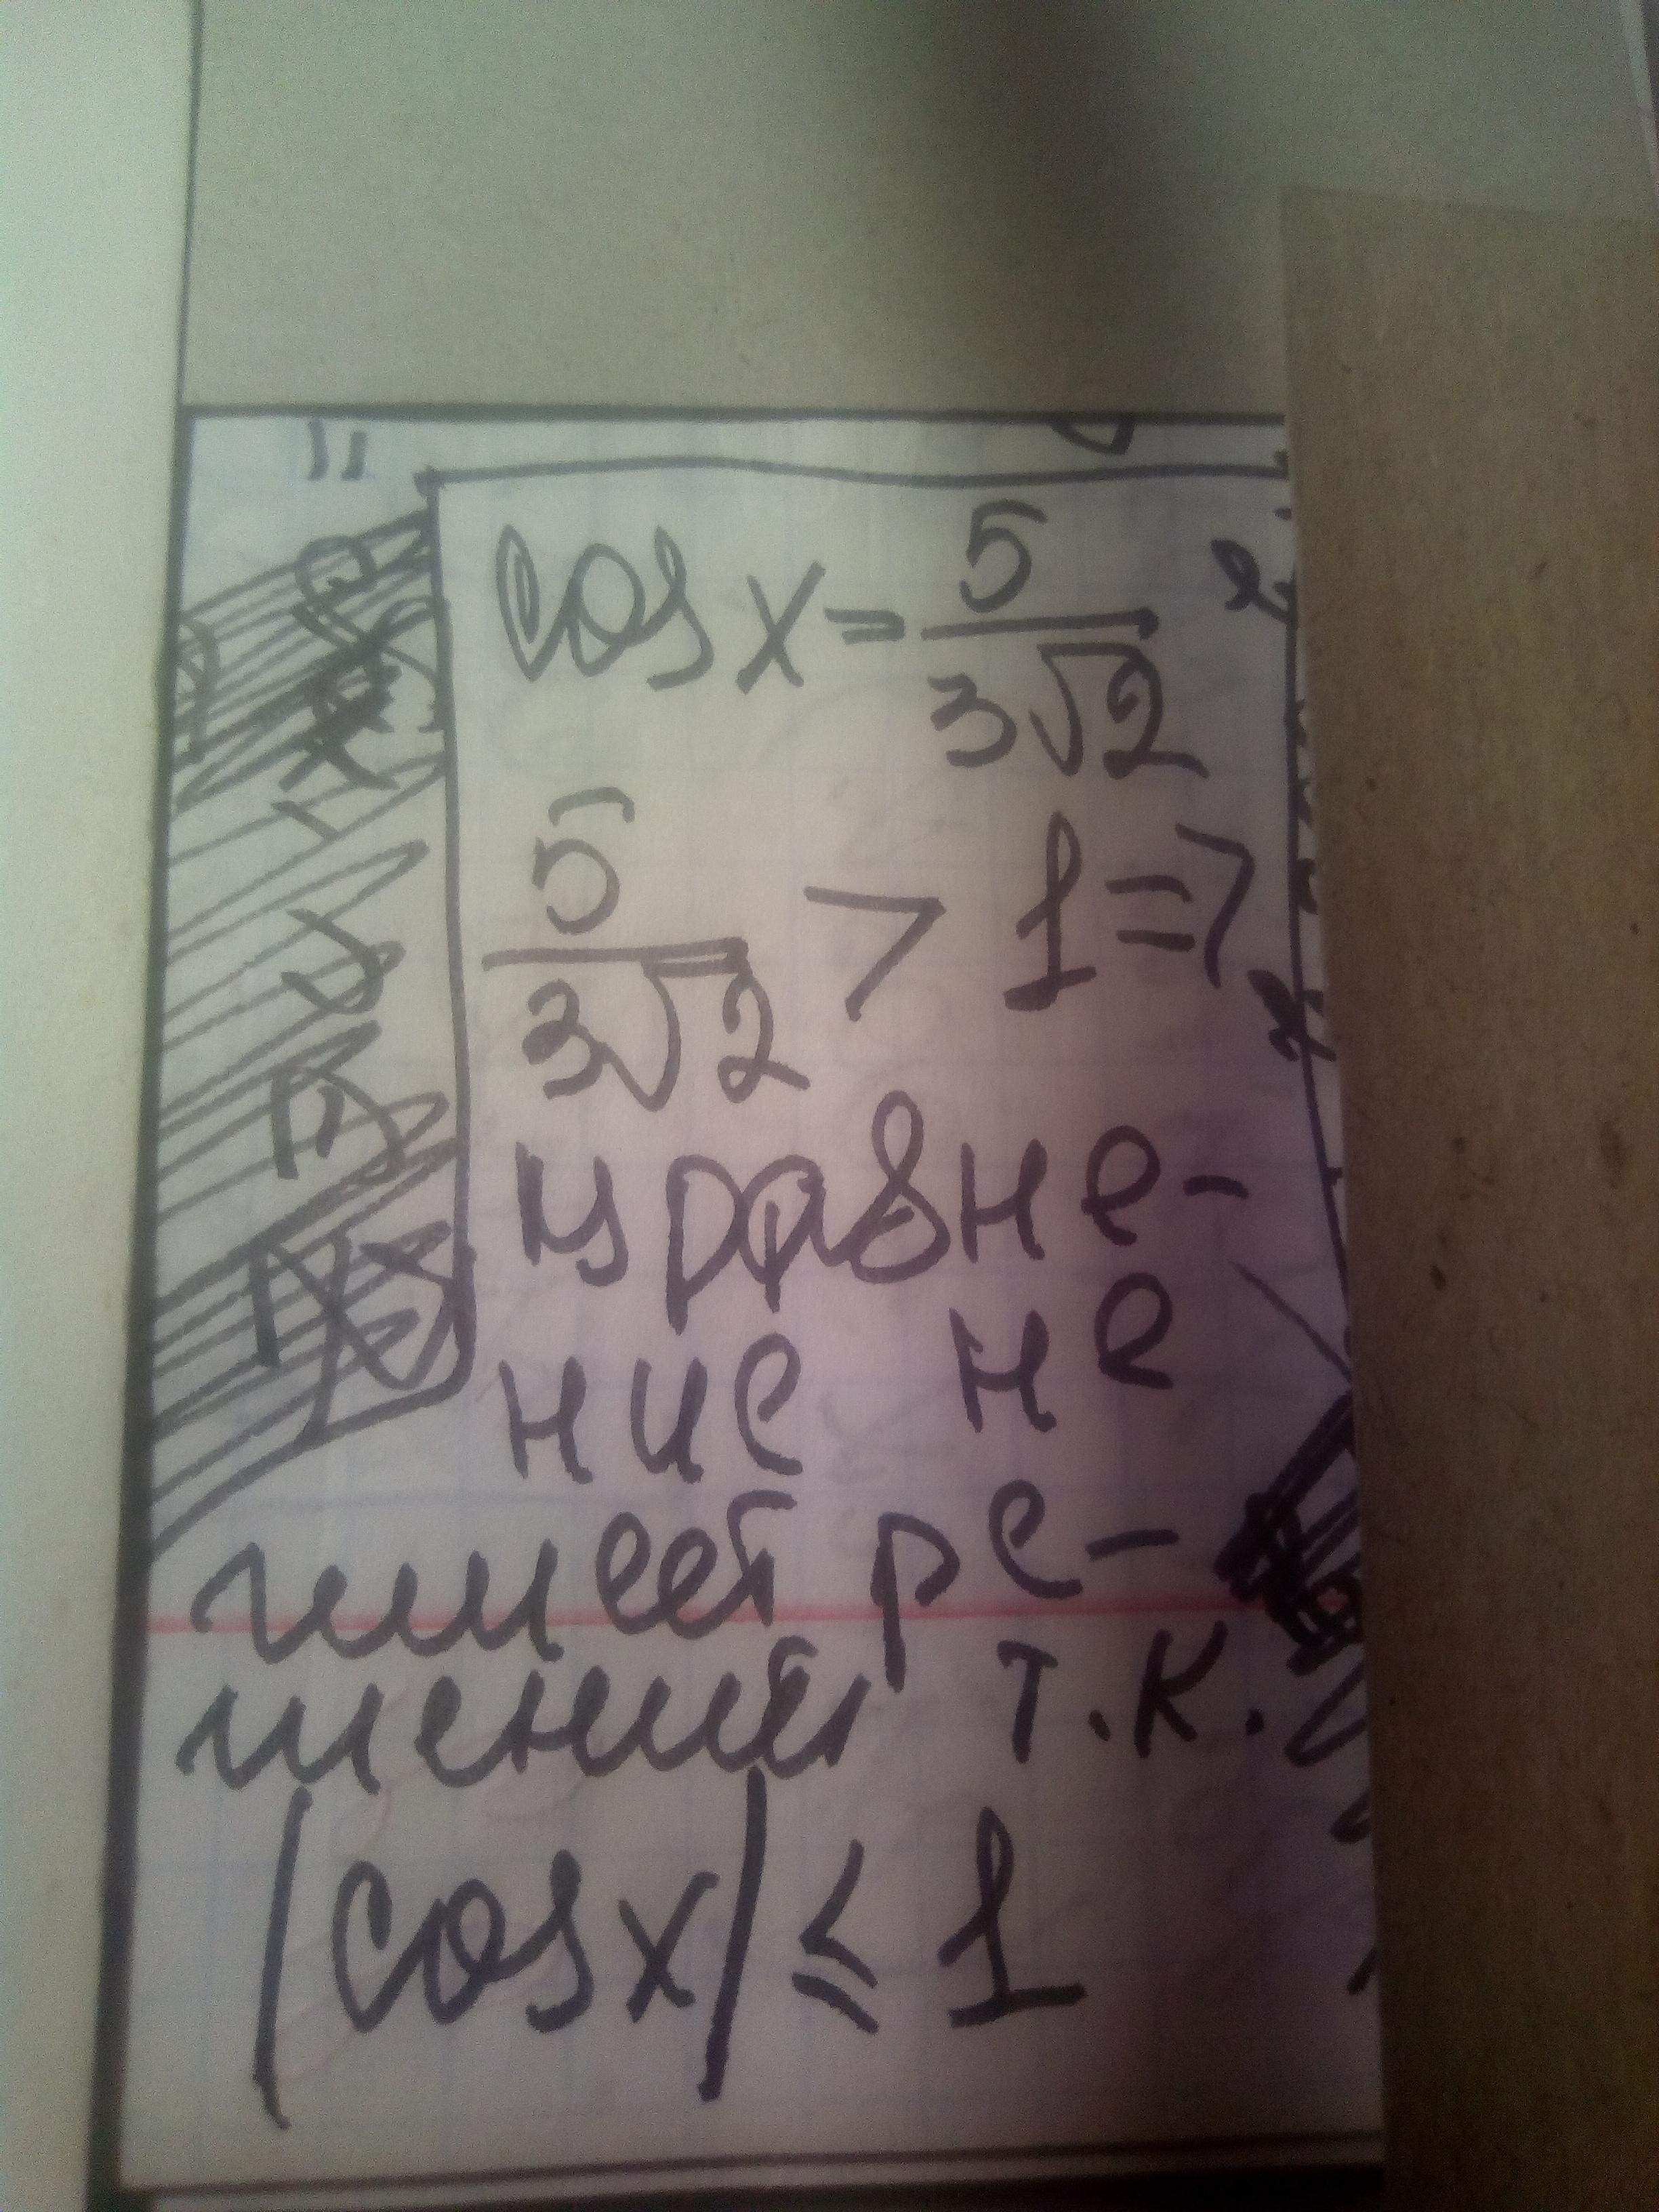 cos x = 5/(3√2)
5/(3√2) > 1 =>
уравне-
ние не
имеет ре-
шений т.к.
|cos x| ≤ 1